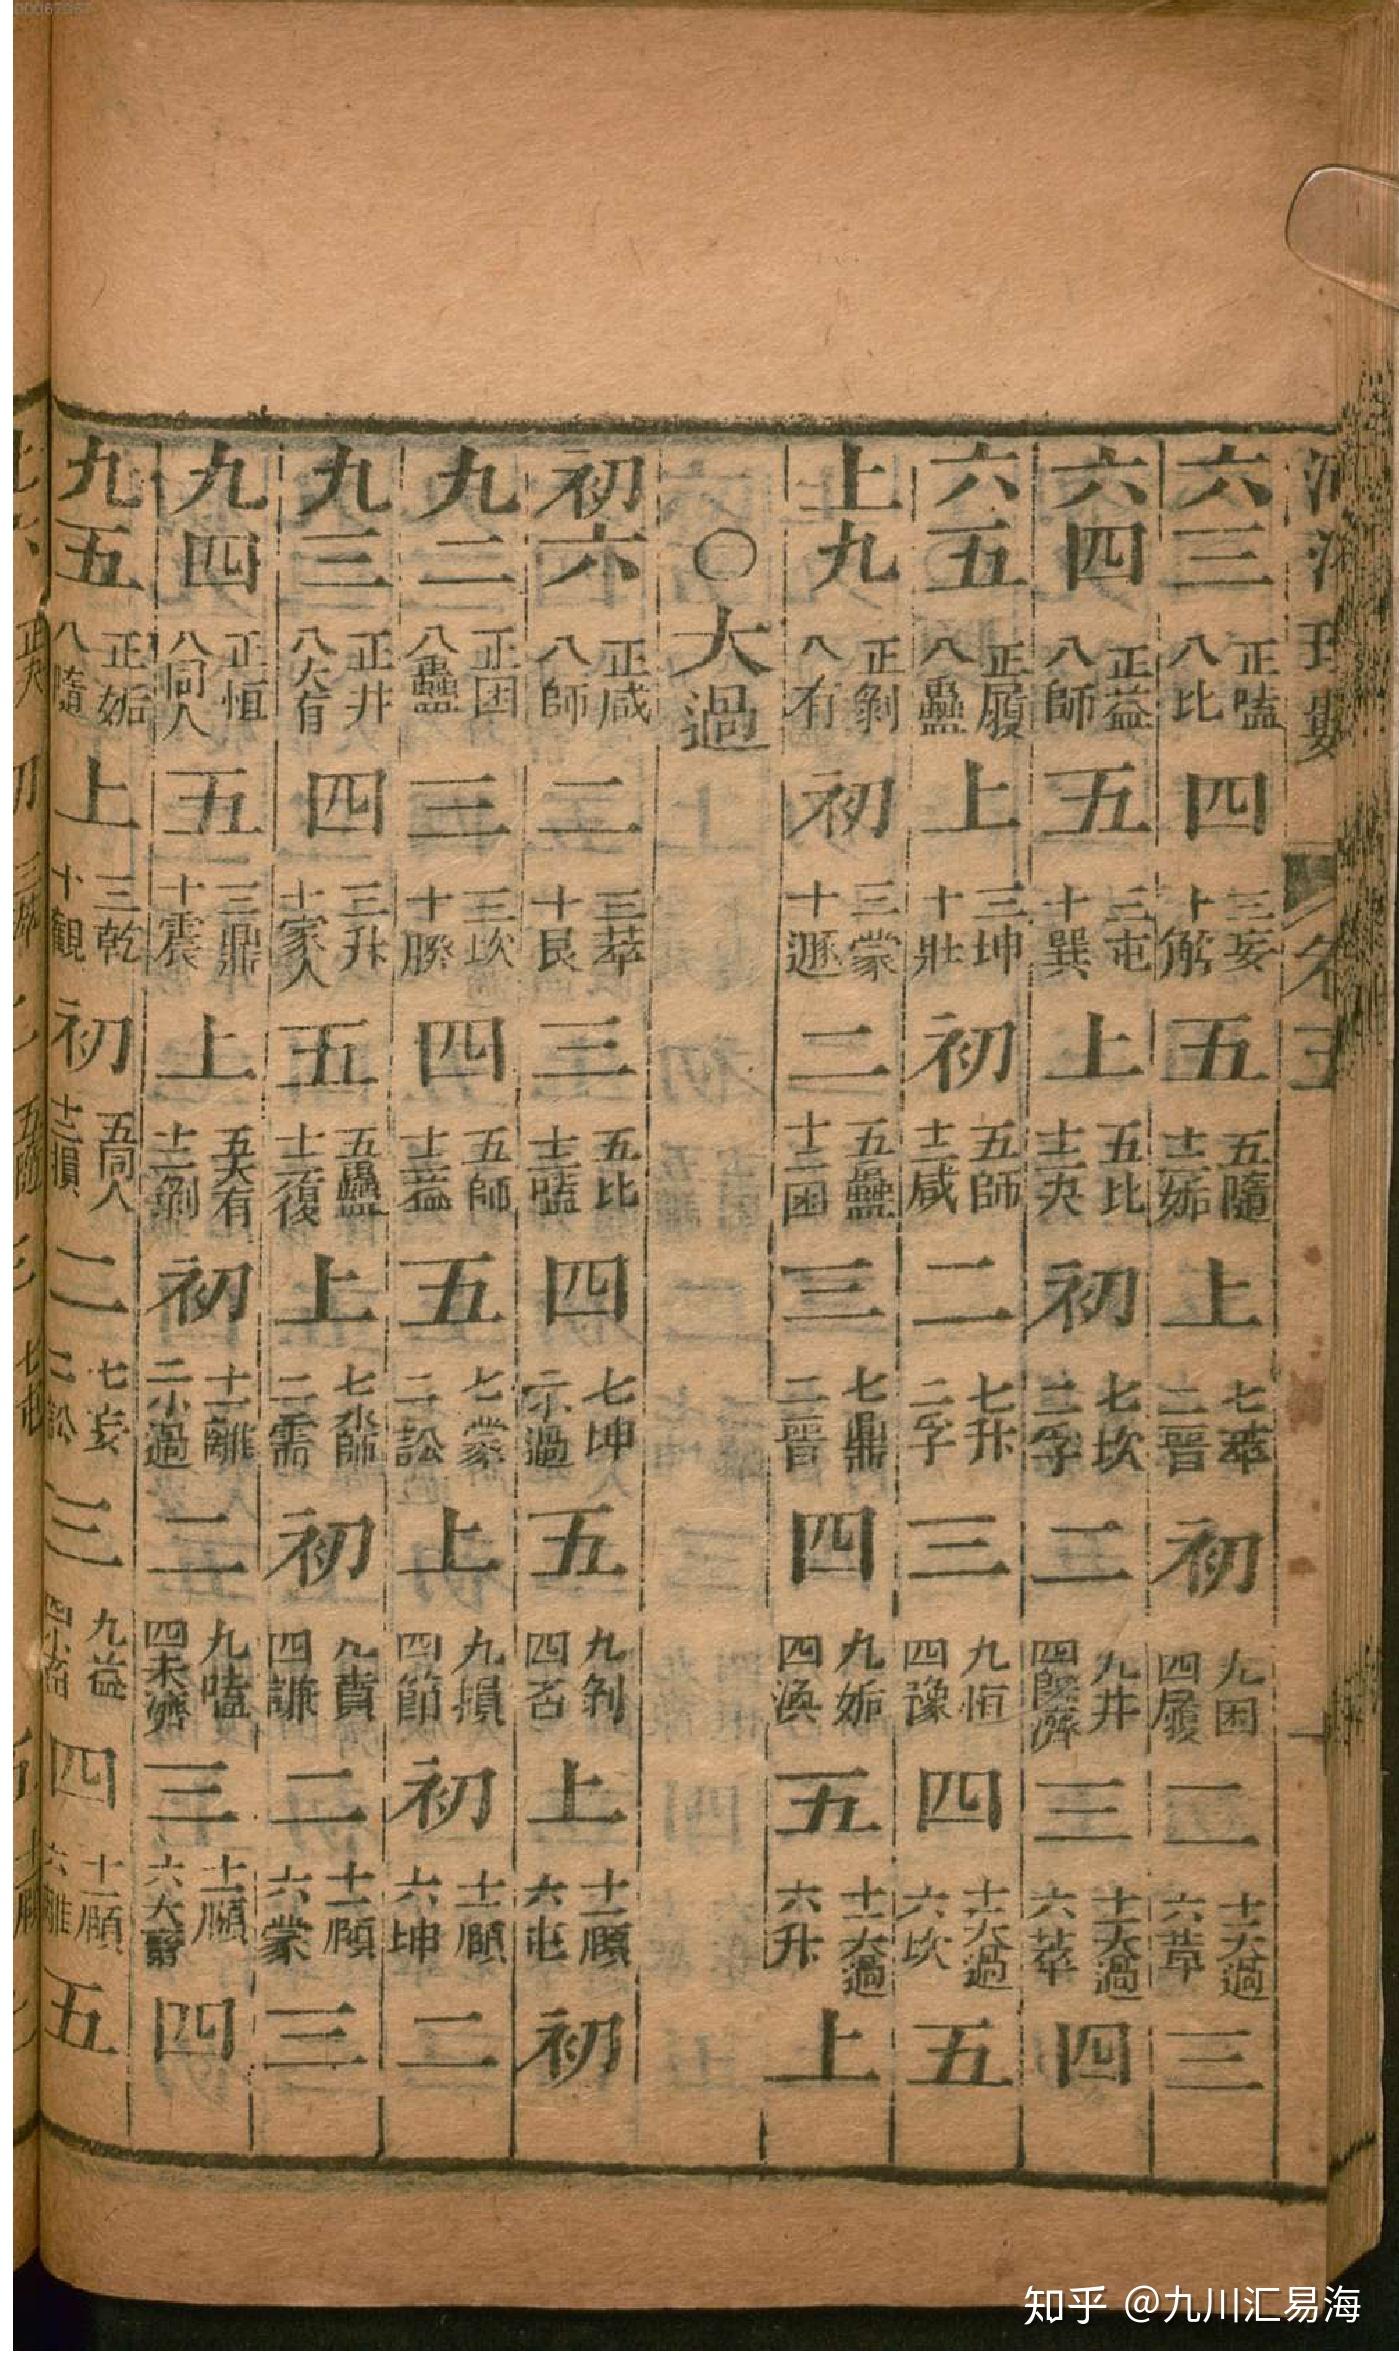 河洛理數 卷五
六三 正嗑 八比 四 三妄 十觧 五 五隨 十二姤 上 七萃 二晉 初 九困 四履 二 十一大過 六革 三
六四 正益 八師 五 三屯 十巽 上 五比 十二夬 初 七坎 二孚 二 九井 四旣濟 三 十一大過 六萃 四
六五 正履 八蠱 上 三坤 十壯 初 五師 十二咸 二 七升 二孚 三 九恒 四豫 四 十一大過 六坎 五
上九 正剝 八有 初 三蒙 十遯 二 五蠱 十二困 三 七鼎 二晉 四 九姤 四渙 五 十一大過 六升 上
○大過
初六 正咸 八師 二 三萃 十艮 三 五比 十二嗑 四 七坤 二小過 五 九剝 四否 上 十一頤 六屯 初
九二 正困 八蠱 三 三坎 十睽 四 五師 十二益 五 七蒙 二訟 上 九損 四節 初 十一頤 六坤 二
九三 正井 八大有 四 三升 十家人 五 五蠱 十二復 上 七師 二需 初 九賁 四謙 二 十一頤 六蒙 三
九四 正恒 八同人 五 三鼎 十震 上 五大有 十二剝 初 十一離 二小過 二 九嗑 四未濟 三 十一頤 六大 四
九五 正姤 八隨 上 三乾 十觀 初 五同人 十二損 二 七妄 二訟 三 九益 四小畜 四 十一頤 六離 五
知乎 @九川汇易海